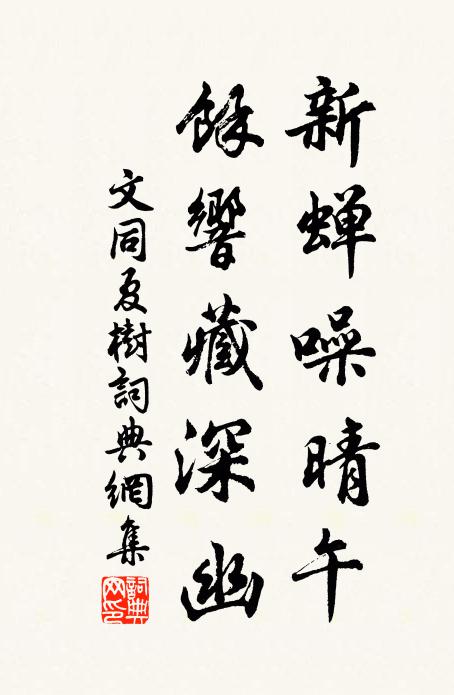 新蟬噪晴午
餘響藏深幽
文同夏樹詞典網集
詞典網印